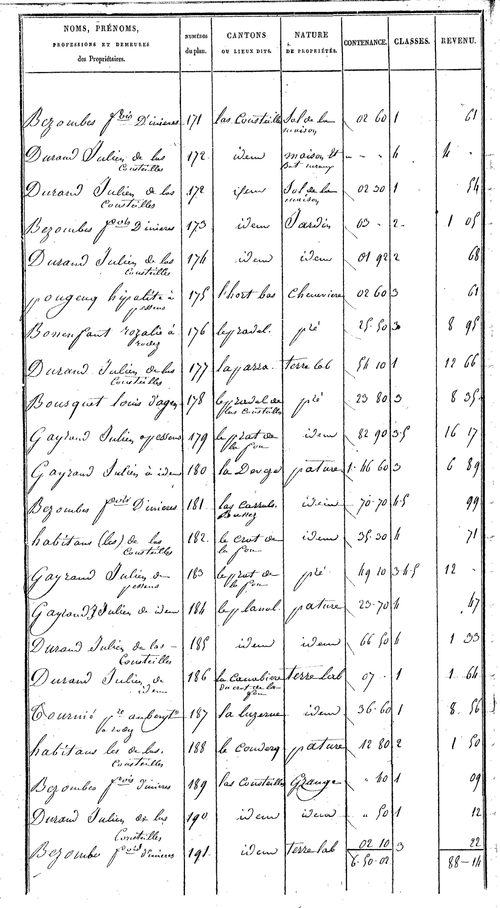 NOMS, PRÉNOMS, PROFESSIONS ET DEMEURES des Propriétaires. NUMÉROS du plan. CANTONS OU LIEUX DITS. NATURE DE PROPRIÉTÉS. CONTENANCE. CLASSES. REVENU.
Bezombes fois D'inieres 171 las Consteilles Sol de la maison 02 60 1 61
Durand Julien de las Consteilles 172 idem maison et 4 4
Durand Julien de las Consteilles 172 idem Sol de la maison 02 30 1 54
Bezombes fois D'inieres 173 idem Jardin 05 2 1 05
Durand Julien de las Consteilles 174 idem idem 01 92 2 68
pougenq hipolite à 175 l'hort bas Cheneviere 02 60 3 61
Bonnenfant rozalie à rodez 176 le pradel pré 25 50 3 8 95
Durand Julien de las Consteilles 177 la parra terre lab 54 10 1 12 66
Bousquet louis d'agen 178 le pradel de las Consteilles pré 23 80 3 8 35
Gayrand Julien 179 le prat de la fon idem 82 90 3-5 16 17
Gayrand Julien à idem 180 la Deveze pature 1 46 60 3 6 89
Bezombes fois D'inieres 181 las idem 70 70 4-5 99
habitans (les) de las Consteilles 182 le crot de la fon idem 35 30 4 71
Gayrand Julien de 183 le prat de la fon pré 49 10 3 4-5 12
Gayrand Julien de idem 184 le planol pature 23 70 4 47
Durand Julien de las Consteilles 185 idem idem 66 50 4 1 33
Durand Julien de idem 186 la Canabiere du crot de la fon terre lab 07 1 1 64
Tournié 187 la luzerne idem 36 60 1 8 56
habitans les de las Consteilles 188 le couderq pature 12 80 2 1 50
Bezombes fois d'inieres 189 las Consteilles Grange 40 1 09
Durand Julien de las Consteilles 190 idem idem 50 1 12
Bezombes fois d'inieres 191 idem terre lab 02 10 3 22
6-50-02 88-14